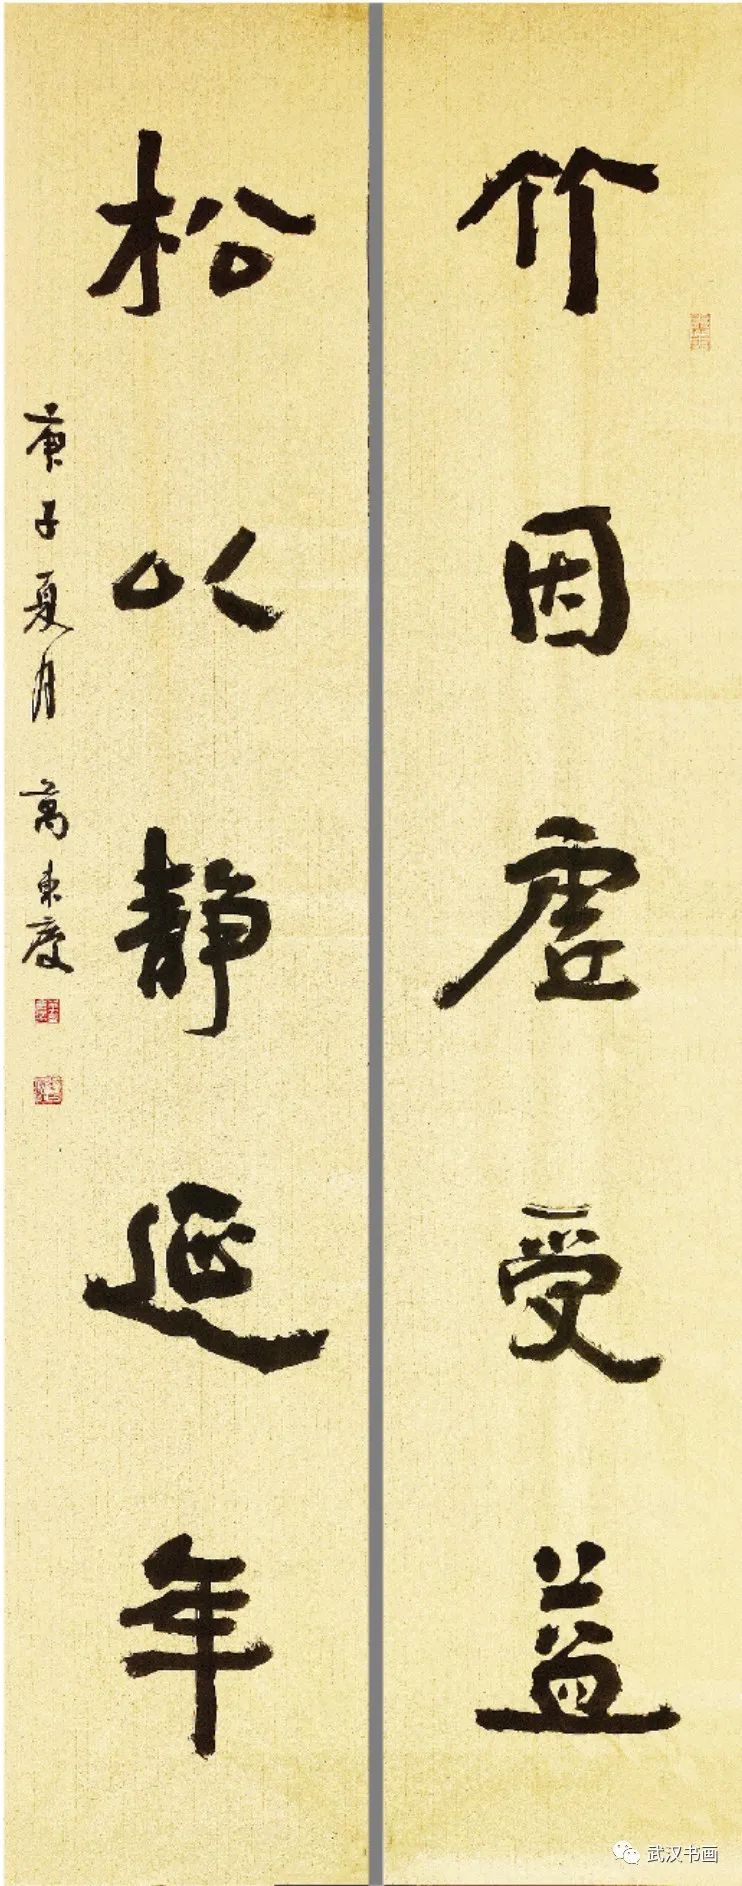 竹因虚受益
松以静延年
庚子夏月 萬東慶
武汉书画